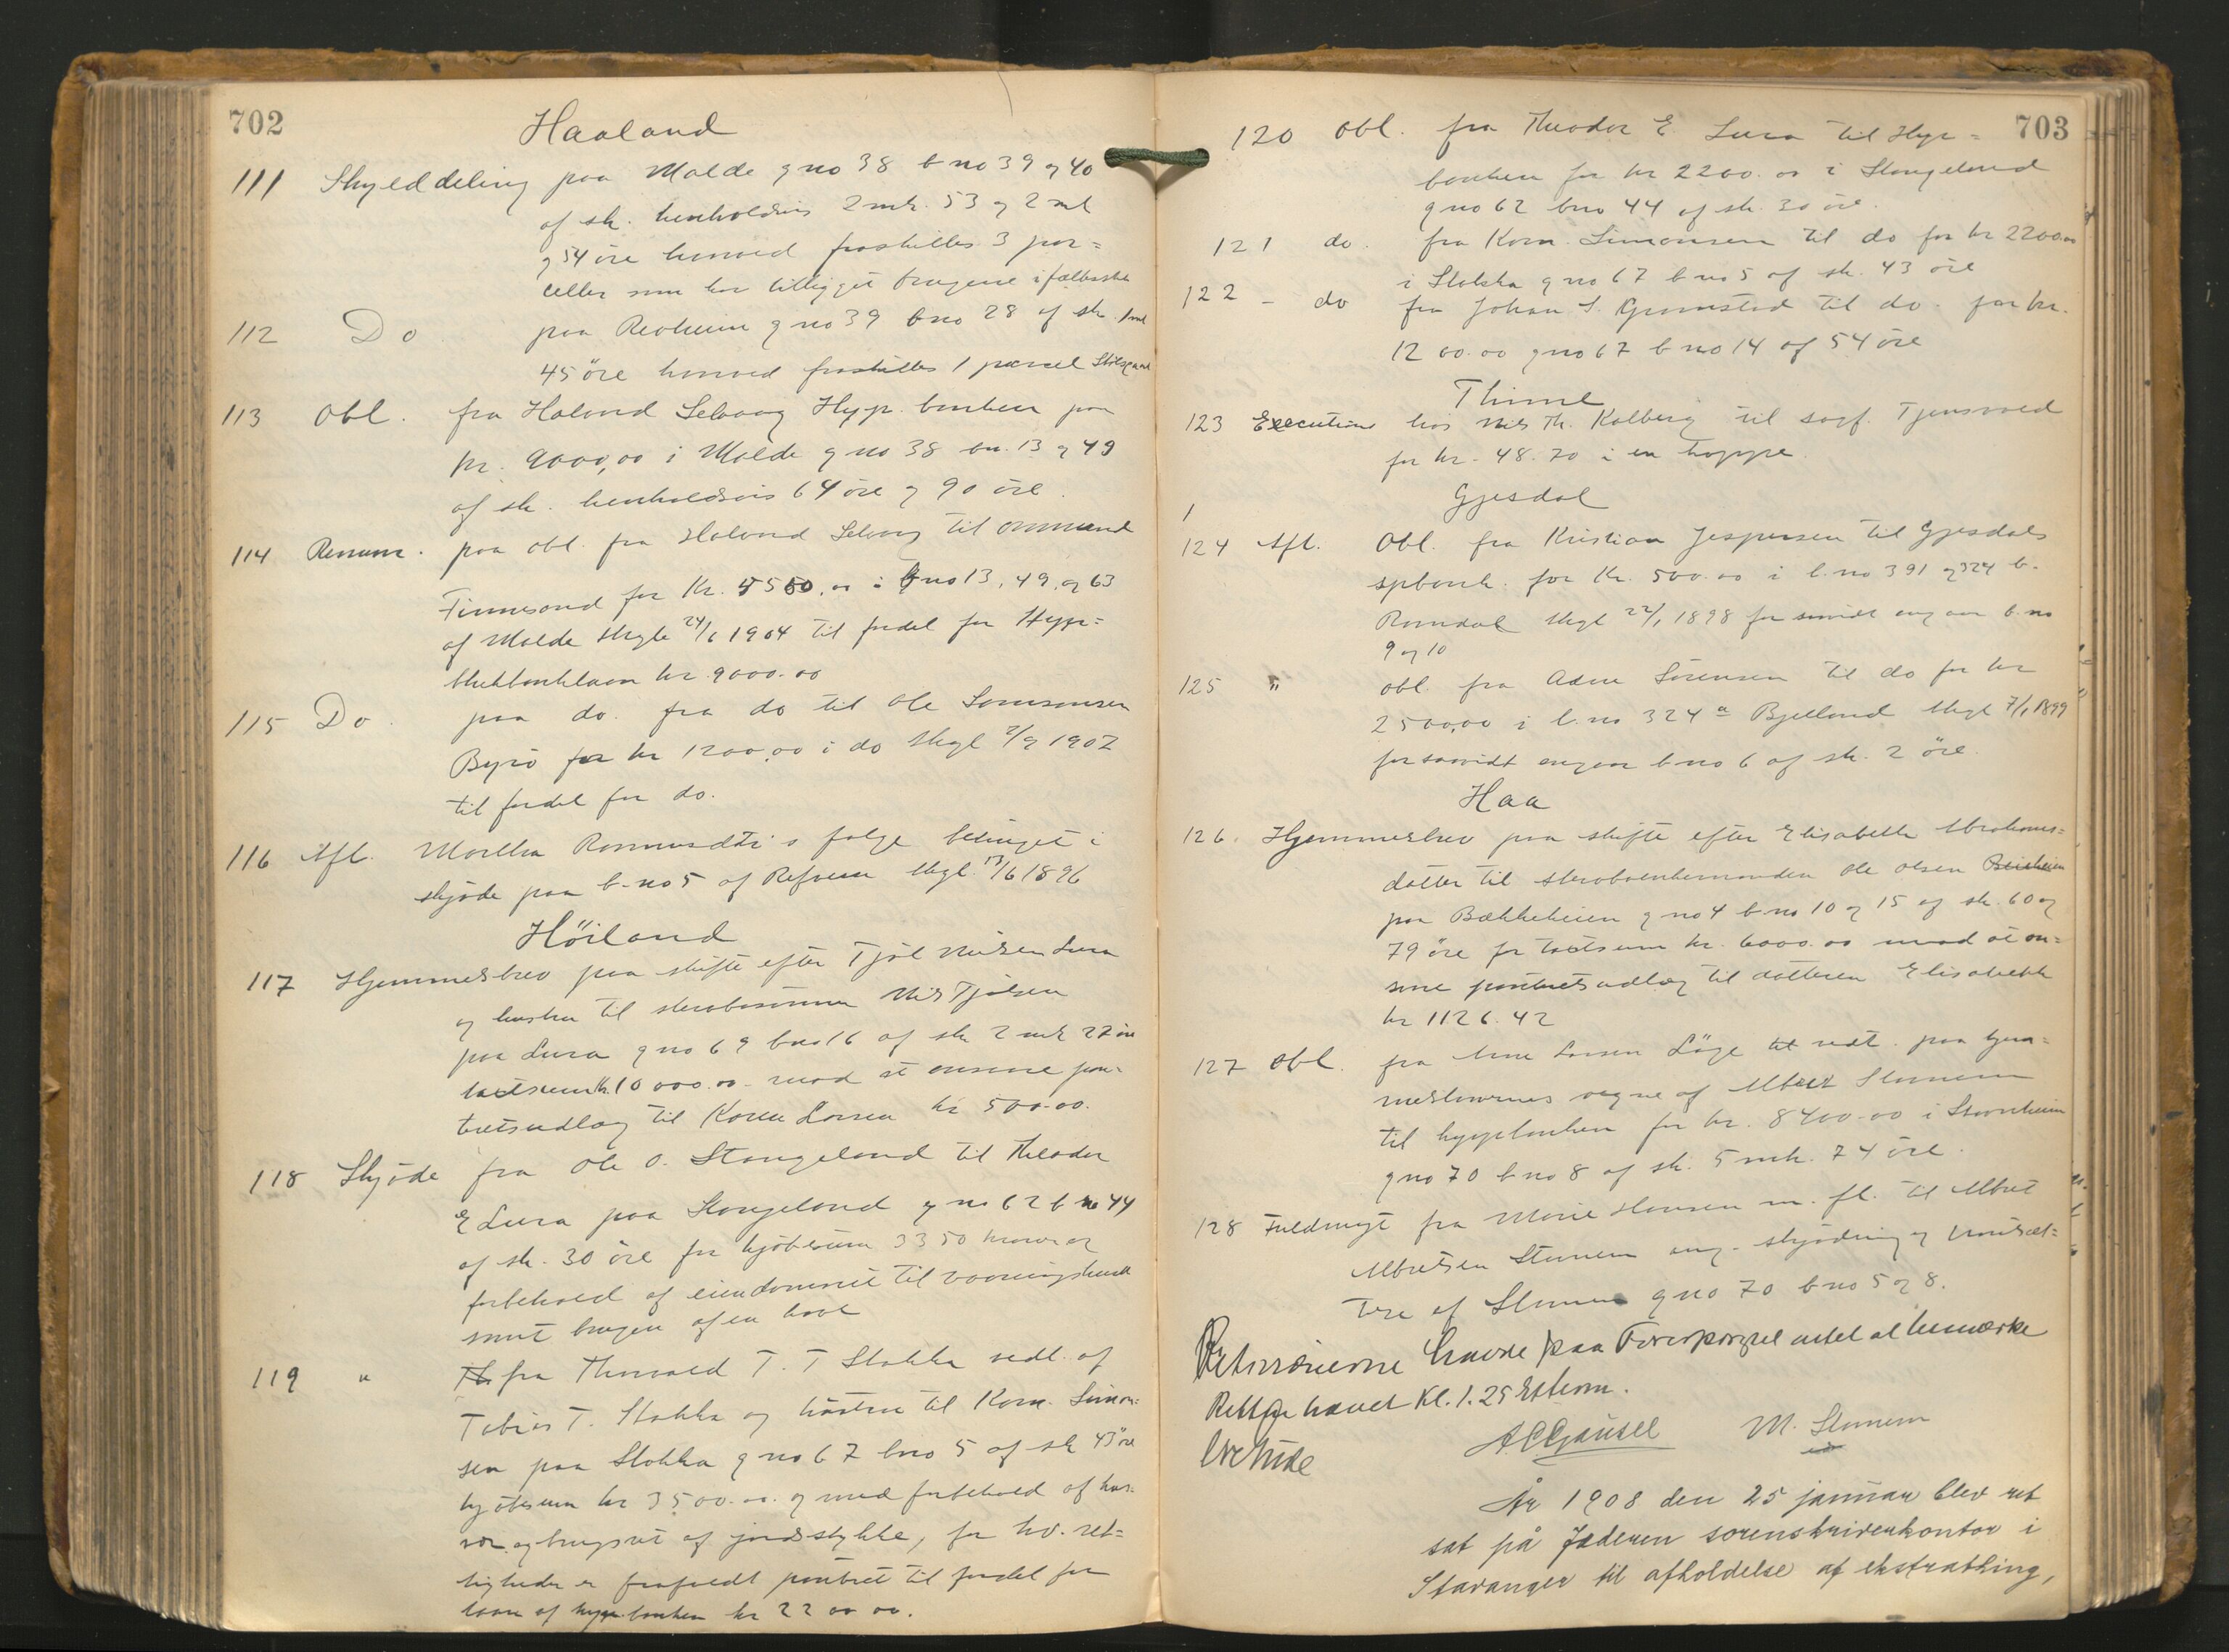 702
Haaland
111 Skylddeling paa Molde gno 38 bno 39 og 40
af sk. henholdsvis 2 mrk. 53 og 2 mk
og 54 öre hvorved fraskilles 3 par=
celler som har tilligget brugene i fælleskab
112 Do paa Revheim gno 39 bno 28 af sk. 1 mk
45 öre hvorved fraskilles 1 parcel
113 Obl. fra Halvord Selvaag Hyp. banken paa
kr. 9000,00 i Molde gno 38 bn. 13 og 49
af sk. henholdsvis 64 öre og 90 öre.
114 Renunc. paa obl. fra Halvord Selvaag til Ommund
Finnesand for Kr. 5500,00 i gno 13, 49, og 63
af Molde thgl 24/6 1904 til fordel for Hypo=
thekbanklaan kr. 9000.00
115 Do. paa do. fra do til Ole Samsonsen
Byrö for kr 1200,00 i do thgl 2/9 1907
til fordel for do.
116 Afl. Martha Rasmusdtr's folge betinget i
skjöde paa b.no 5 af Refsnes thgl. 13/6 1896
Höiland
117 Hjemmelsbrev paa skifte efter Tjöl Nielsen Lura
og hustru til sterbosönnen Nils Tjölsen
paa Lura gno 69 bno 16 af sk 2 mrk 27 öre
taxtsum kr. 10 000.00 mod at ansvare pan-
tretsudlæg til Karen Larsen kr 500.00.
118 Skjöde fra Ole O. Stangeland til Theodor
E Lura paa Stangeland gno 62 bno 44
af sk. 30 öre for kjöbesum 3350 kroner og
forbehold af eiendomsret til vaaningshuset
samt brugen af en have
119 " fra Thorvald T. T Stokka vedt. af
Tobias T. Stokka og hustru til Korn. Simon=
sen paa Stokka gno 67 bno 5 af sk 43 öre
kjöbesum kr 3500.00. og med forbehold af hus-
vær og brugsret af jordstykke, for hv. ret=
tigheder er frafaldt pantret til fordel for
laan af hypo. banken kr 2200 00.
703
120 Obl. fra Theodor E. Lura til Hypo=
banken for kr 2200.00 i Stangeland
gno 62 bno 44 af sk. 30 öre.
121 do. fra Korn. Simonsen til do for kr 2200.00
i Stokka gno 67 bno 5 af sk. 43 öre
122 - do fra Johan S. Grimstad til do. for kr.
1200.00 gno 67 bno 14 af 54 öre
Thime
123 Execution hos Nils Th. Kalberg til sagf. Tjensvold
for kr. 48.70 i en hoppe.
Gjesdal
124 Afl. Obl. fra Kristian Jespersen til Gjesdals
spbank. for Kr. 500.00 i l.no 391 og 324 b.
Ravndal thgl 22/1 1898 for saavidt angaar b.no
9 og 10
125 " obl. fra Adne Sörensen til do for kr
2500,00 i l.no 324 a Bjelland thgl 7/1 1899
forsaavidt angaar bno 6 af sk. 2 öre.
Haa
126. Hjemmelsbrev paa skifte efter Elisabeth Abrahams=
datter til sterboenkemanden Ole Olsen
paa Bækkeheien gno 4 bno 10 og 15 af sk. 60 og
79 öre for taxtsum kr. 6000.00 mod at an=
svare pantretsudlæg til datteren Elisabeth
kr 1126.42
127 Obl. fra Arne Larsen Löge vedt. paa hjem=
melsbrevs vegne af Albret Stuneim
til hypobanken for kr. 8400.00 i
gno 70 bno 8 af sk. 5 mrk. 74 öre.
128 Fuldmagt fra Marie Hansen m. fl. til Albret
Albretsen Stuneim ang. skjödning og pantsæt=
telse af gno 70 bno 5 og 8.
havde paa Forespörgsel intet at bemærke
Retten hævet Kl. 1.25 Efterm.
A C Gausel M. Stuneim
År 1908 den 25 januar blev ret
sat på Jæderen sorenskriverkontor i
Stavanger til afholdelse af ekstrathing,